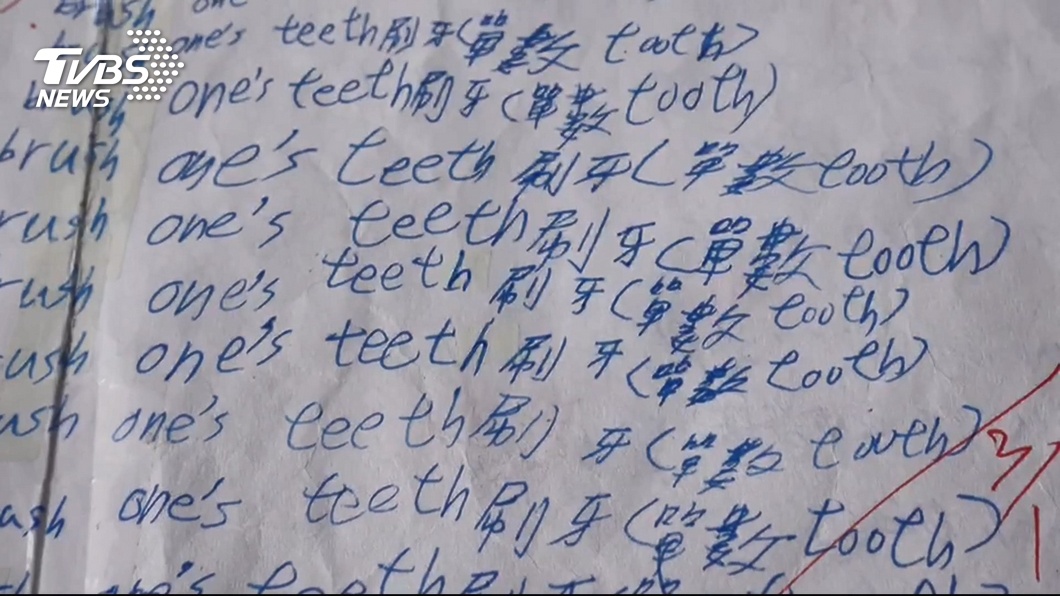 brush one
one's teeth刷牙(單數 tooth)
TVBS
NEWS
one's teeth刷牙(單數tooth)
brush one's teeth 刷牙(單數tooth)
rush one's teeth刷牙(單數tooth)
rush one's teeth 刷牙(單數 tooth)
ush one's teeth刷牙(單數 tooth)
ush one's teeth刷牙(單數 tooth)
ush one's teeth刷牙(單數tooth)
one's teeth刷牙